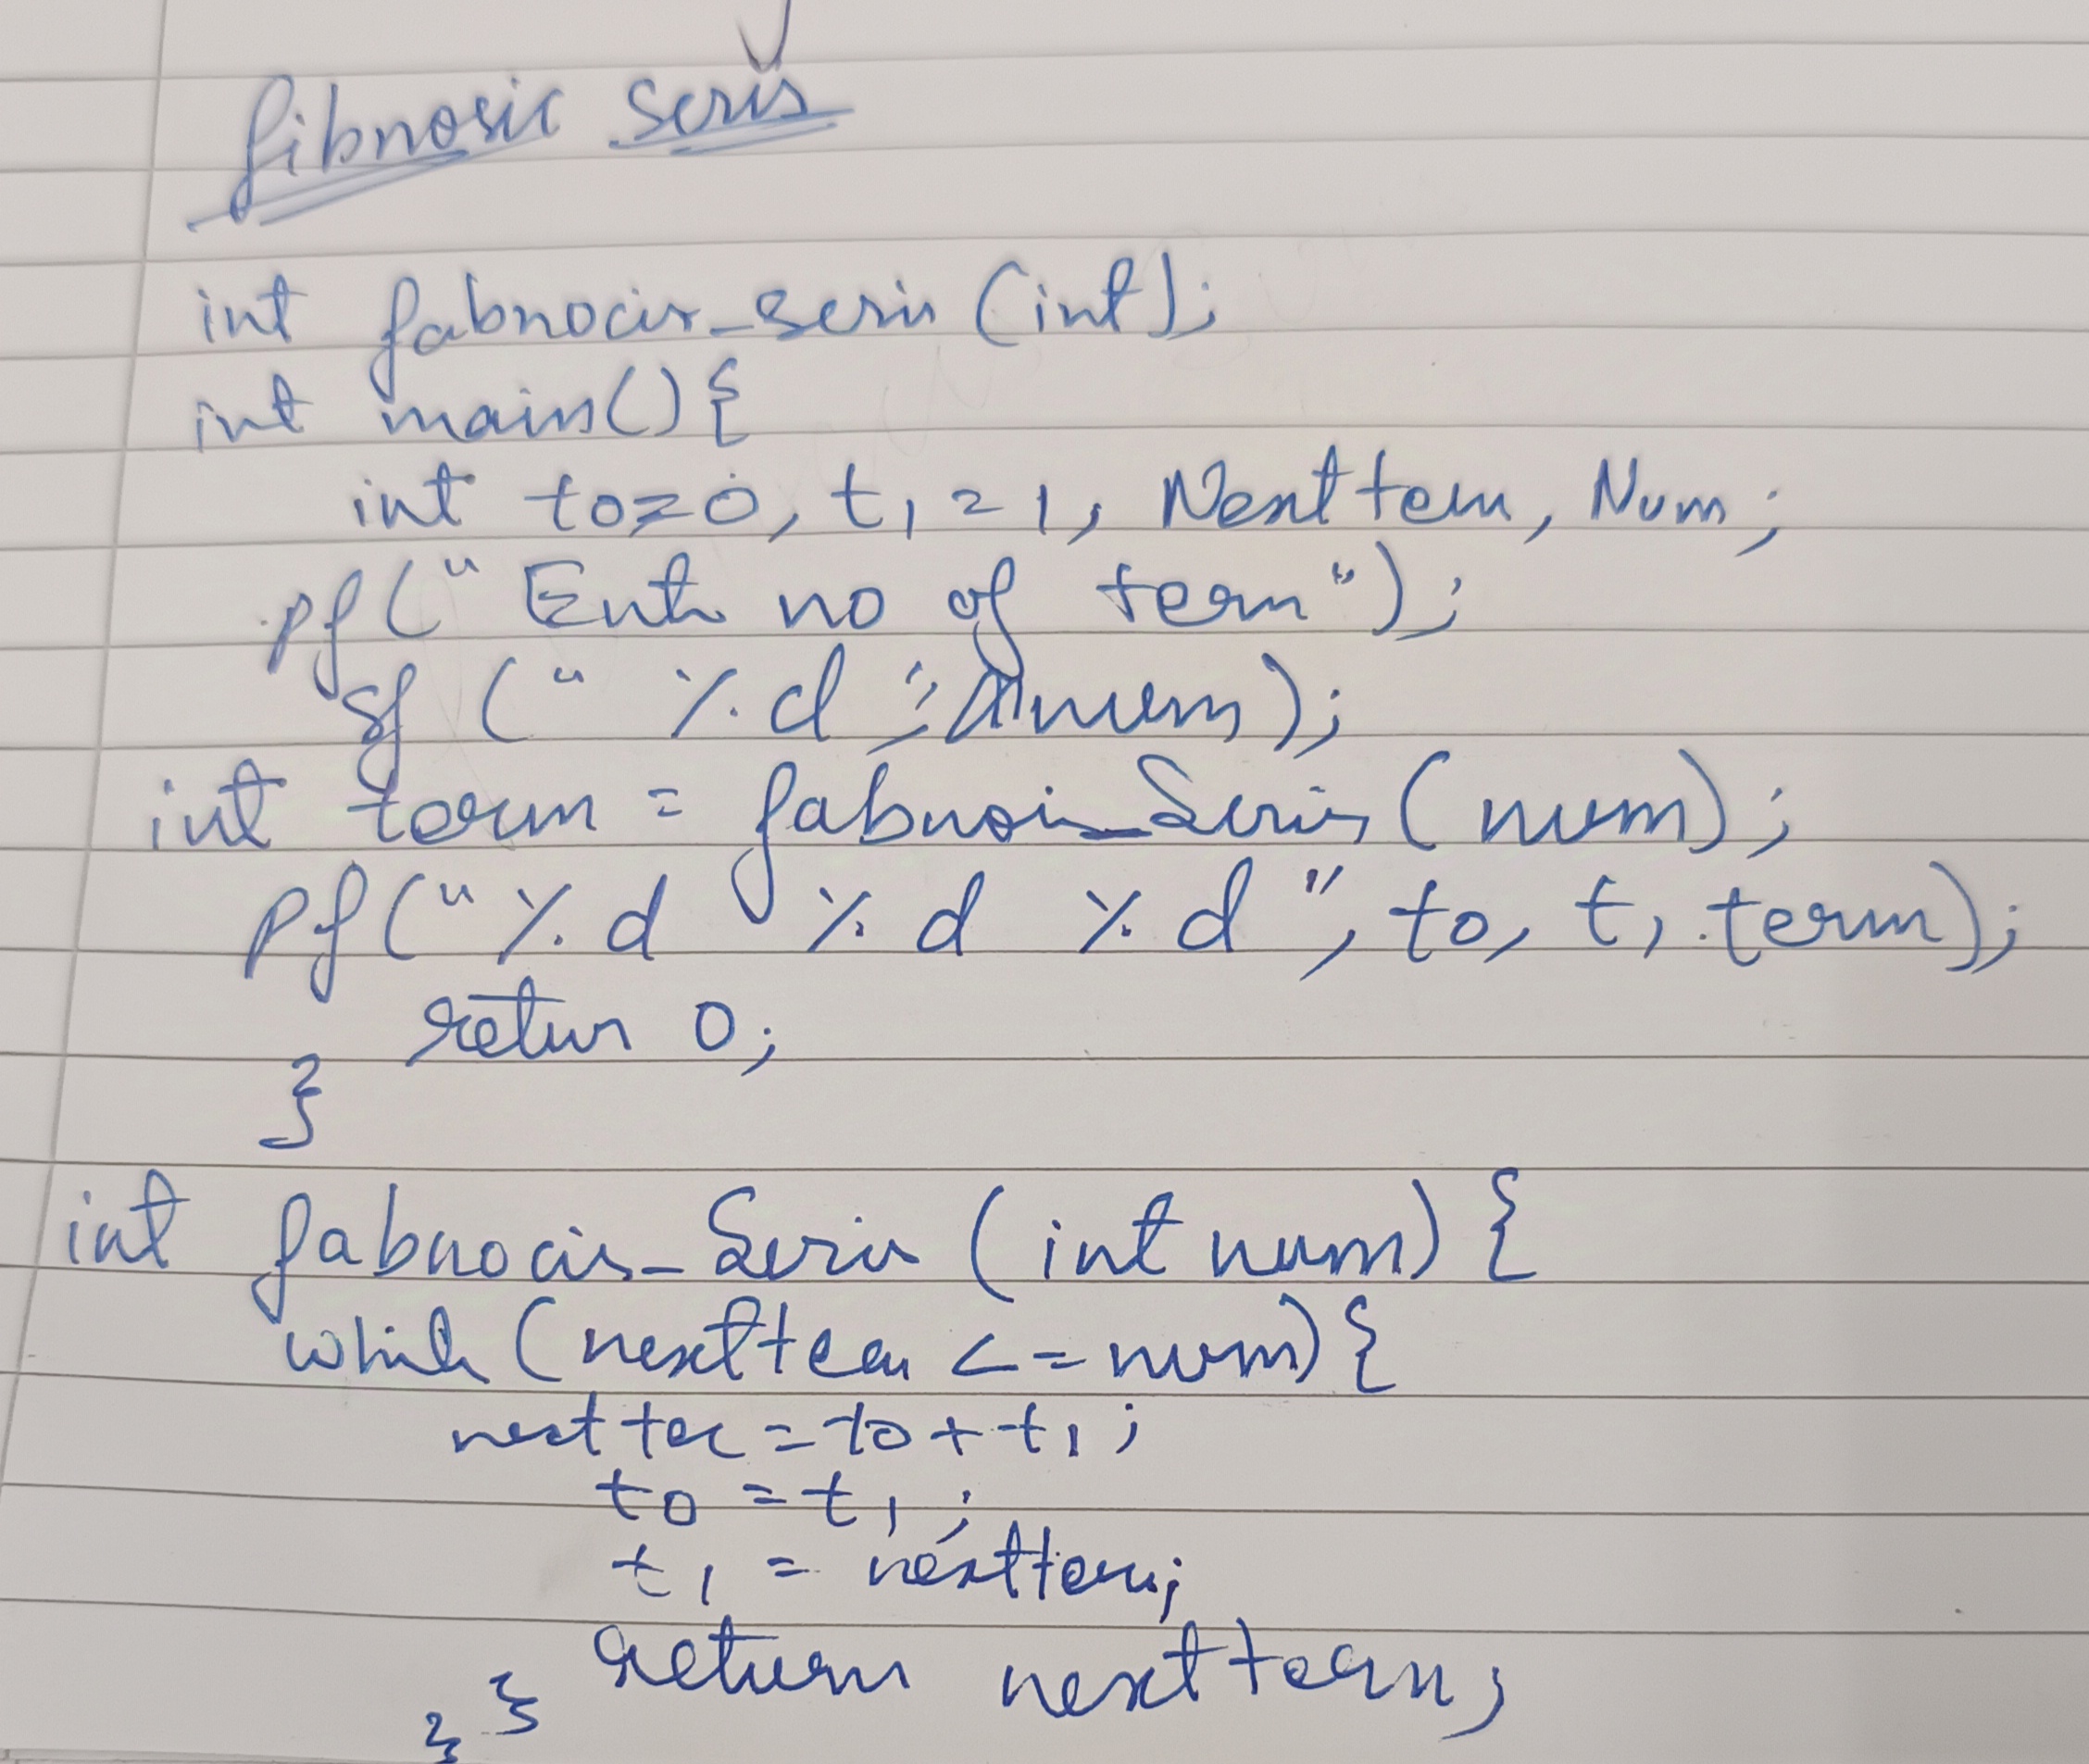 fibnosic seris
int fabnocis_seris (int);
int main() {
int t0=0, t1=1, Nextterm, Num;
pf("Enter no of term");
sf ("%d", &num);
int term = fabnois_Seris (num);
pf("%d %d %d", t0, t1, term);
retur 0;
}
int fabnocis_Seris (int num) {
while (nextterm <= num) {
next ter = t0 + t1;
t0 = t1;
t1 = nextterm;
return nextterm;
} }